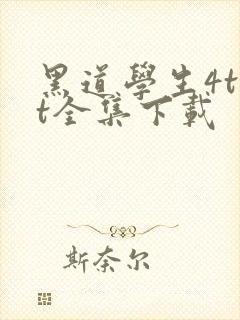 黑道學生4t
t全集下載
斯奈尔